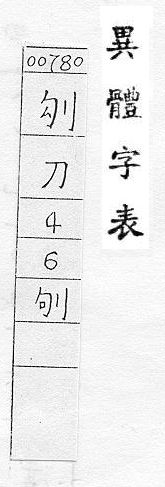 異體字表
00780
刎
刀
4
6